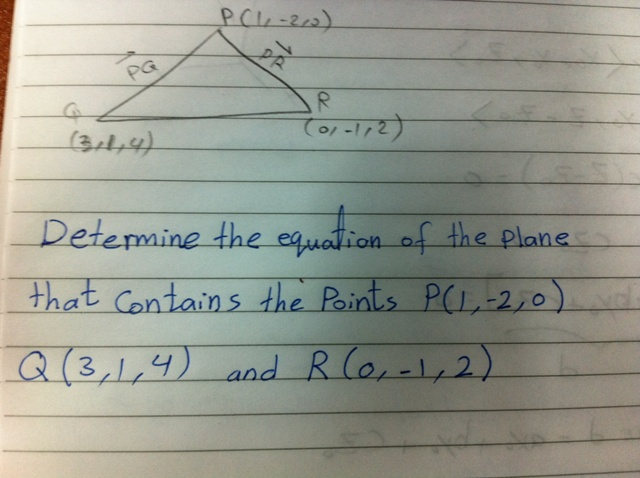 P(1,-2,0)
PQ
PR
Q
R
(3,1,4)
(0,-1,2)
Determine the equation of the plane
that Contains the Points P(1,-2,0)
Q(3,1,4) and R(0,-1,2)